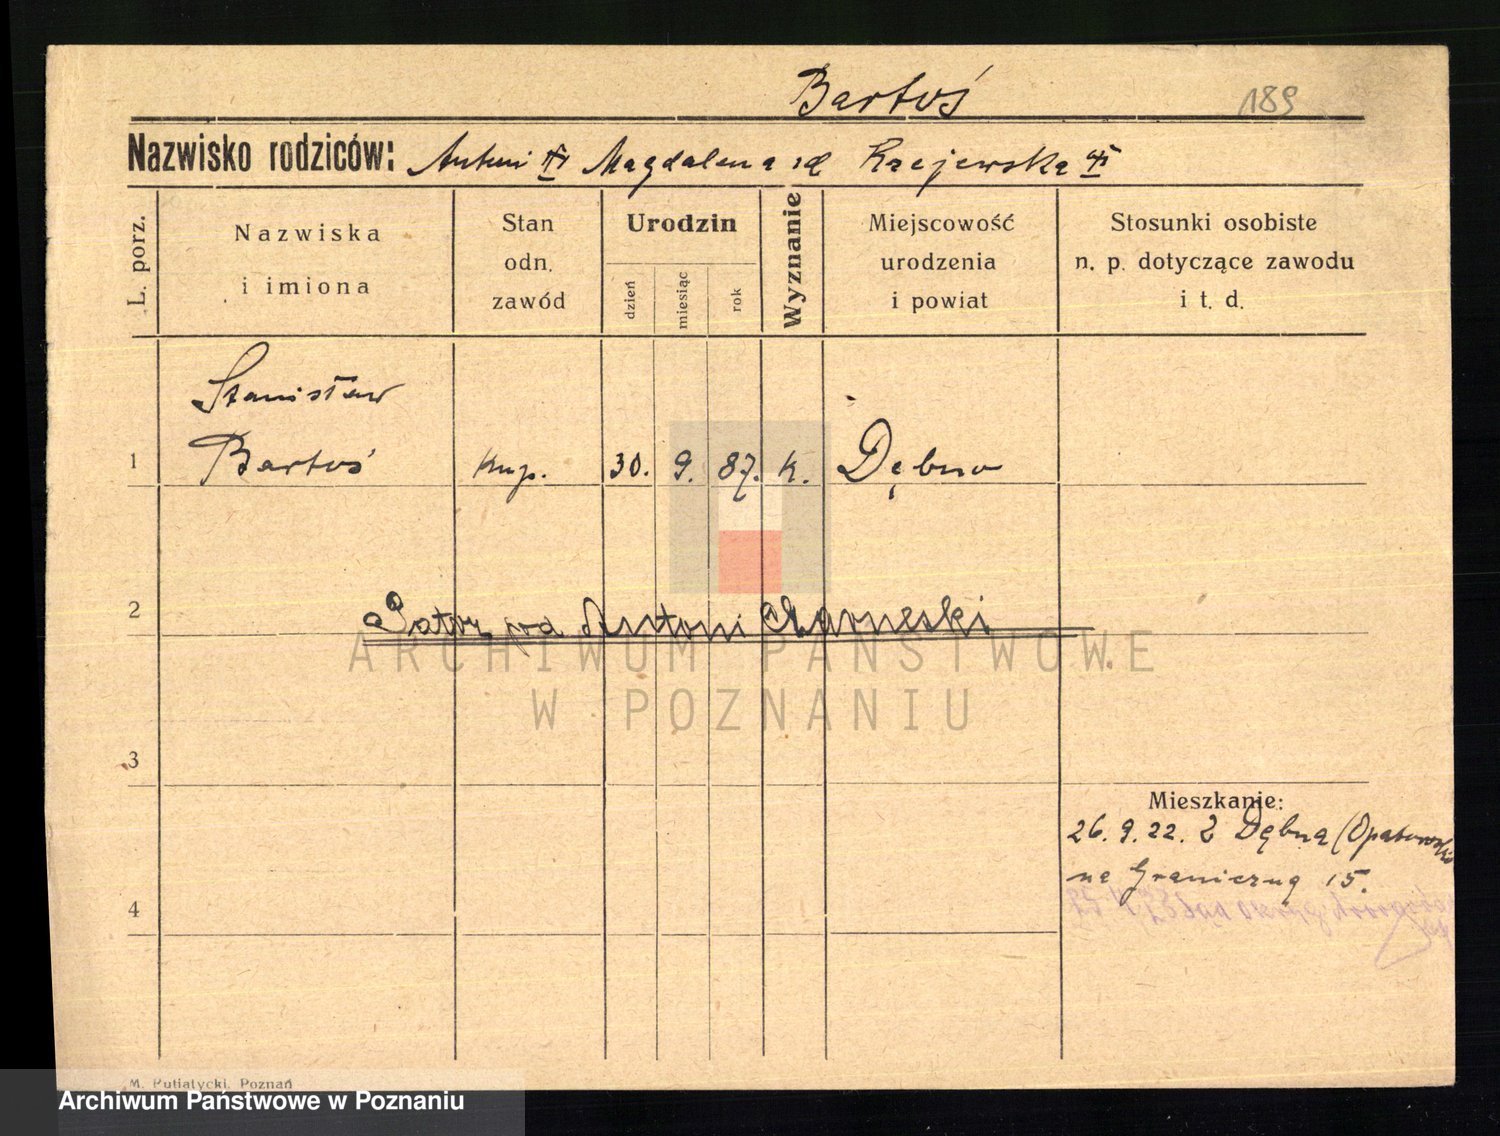 Bartoś 189
Nazwisko rodziców: Antoni Magdalena zd Krajewska
L. porz.
Nazwiska
i imiona
Stan
odn.
zawód
Urodzin
dzień
miesiąc
rok
Wyznanie
Miejscowość
urodzenia
i powiat
Stosunki osobiste
n. p. dotyczące zawodu
i t. d.
Stanisław
1 Bartoś Kup. 30. 9. 87. k. Dębno
2
pod Antoni
ARCHIWUM PAŃSTWOWE
W POZNANIU
3
Mieszkanie:
26. 9. 22. Z Dębna
na Graniczną 15.
4
M. Putiatycki, Poznań
Archiwum Państwowe w Poznaniu